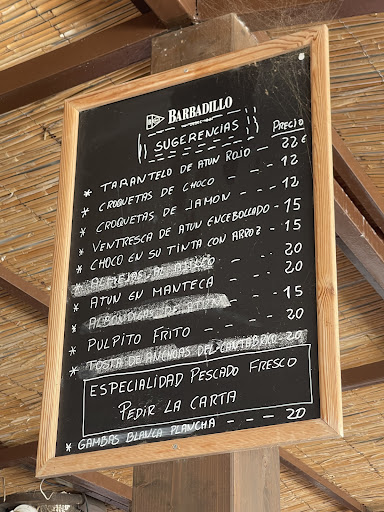 BARBADILLO
SUGERENCIAS
PRECIO
* TARANTELO DE ATUN ROJO - - 22 €
* CROQUETAS DE CHOCO - - - 12
* CROQUETAS DE JAMON - - - 12
* VENTRESCA DE ATUN ENCEBOLLADO - 15
* CHOCO EN SU TINTA CON ARROZ - 15
* ALMEJAS AL AJILLO - - - 20
* ATUN EN MANTECA - - - 20
* ALBONDIGAS DE ATUN - - 15
* PULPITO FRITO - - - 20
* TOSTA DE ANCHOAS DEL CANTABRICO - 20
ESPECIALIDAD PESCADO FRESCO
PEDIR LA CARTA
* GAMBAS BLANCA PLANCHA - - - 20